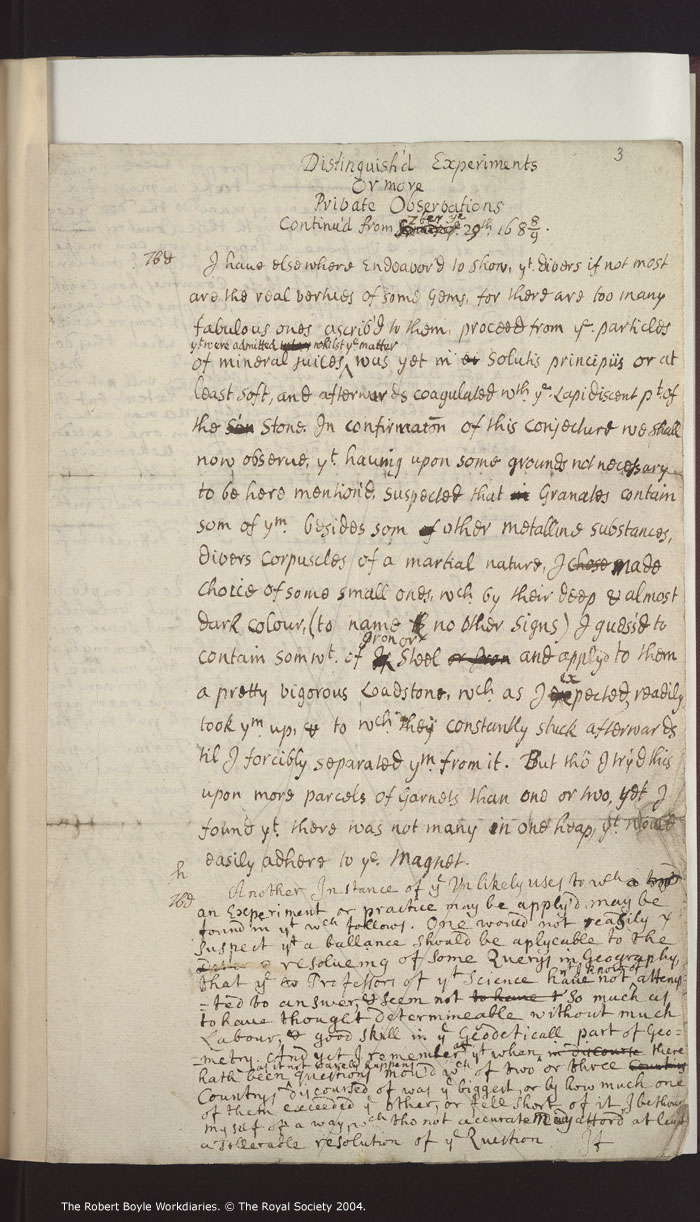 3
Distinguish'd Experiments
Or more
Private Observations
Continu'd from 7ber. ye 29th. 168 8/9.
I have elsewhere Endeavor'd to show, yt. divers if not most
are the real vertues of some Gems, for there are too many
fabulous ones ascrib'd to them, proceed from ye. particles
yt were admitted whilst ye matter
of mineral Juices, was yet in Solutis principiis or at
least soft, and afterwards coagulated wth ye. Lapidiscent pt. of
the Stone. In confirmaton of this conjecture we shall
now observe, yt. having upon some grounds not necessary
to be here mention'd, suspected that in Granates contain
som of ym. besides som of other metalline substances,
divers Corpuscles of a martial nature, I chose made
choice of some small ones, wch. by their deep & almost
dark colour, (to name no other Signs) I guess'd to
Iron or
contain somwt. of Steel or Iron and apply'd to them
ex
a pretty vigorous Loadstone, wch as I pected, readily
took ym up, & to wch they constantly stuck afterwards
til I forcibly separated ym. from it. But tho I try'd this
upon more parcels of Garnets than one or two, yet I
found yt. there was not many in one heap, yt would
easily adhere to ye. Magnet.
Another Instance of ye Unlikely uses to wch a
an Experiment or practice may be apply'd, may be
found in yt wch follows. One would not reasily
suspect yt a ballance should be aplycable to the
resolueing of some Querys in Geography,
that ye Professors of yt Science have not, attemp-
-ted to answer, & seem not to have t So much as
to have thought determineable without much
Labour, & good skill in ye Geodeticall part of Geo-
-metry. And yet I remember yt when, in discourse there
as it not rarely happens
hath been questions mov'd wch of two or three Countrys
Countrys discoursed of was ye biggest, or by how much one
of them exceeded ye other, or fell short of it I bethout
my self of a way, wch tho not accurate May afford at least
a tollerable resolution of ye Question If
The Robert Boyle Workdiaries. © The Royal Society 2004.